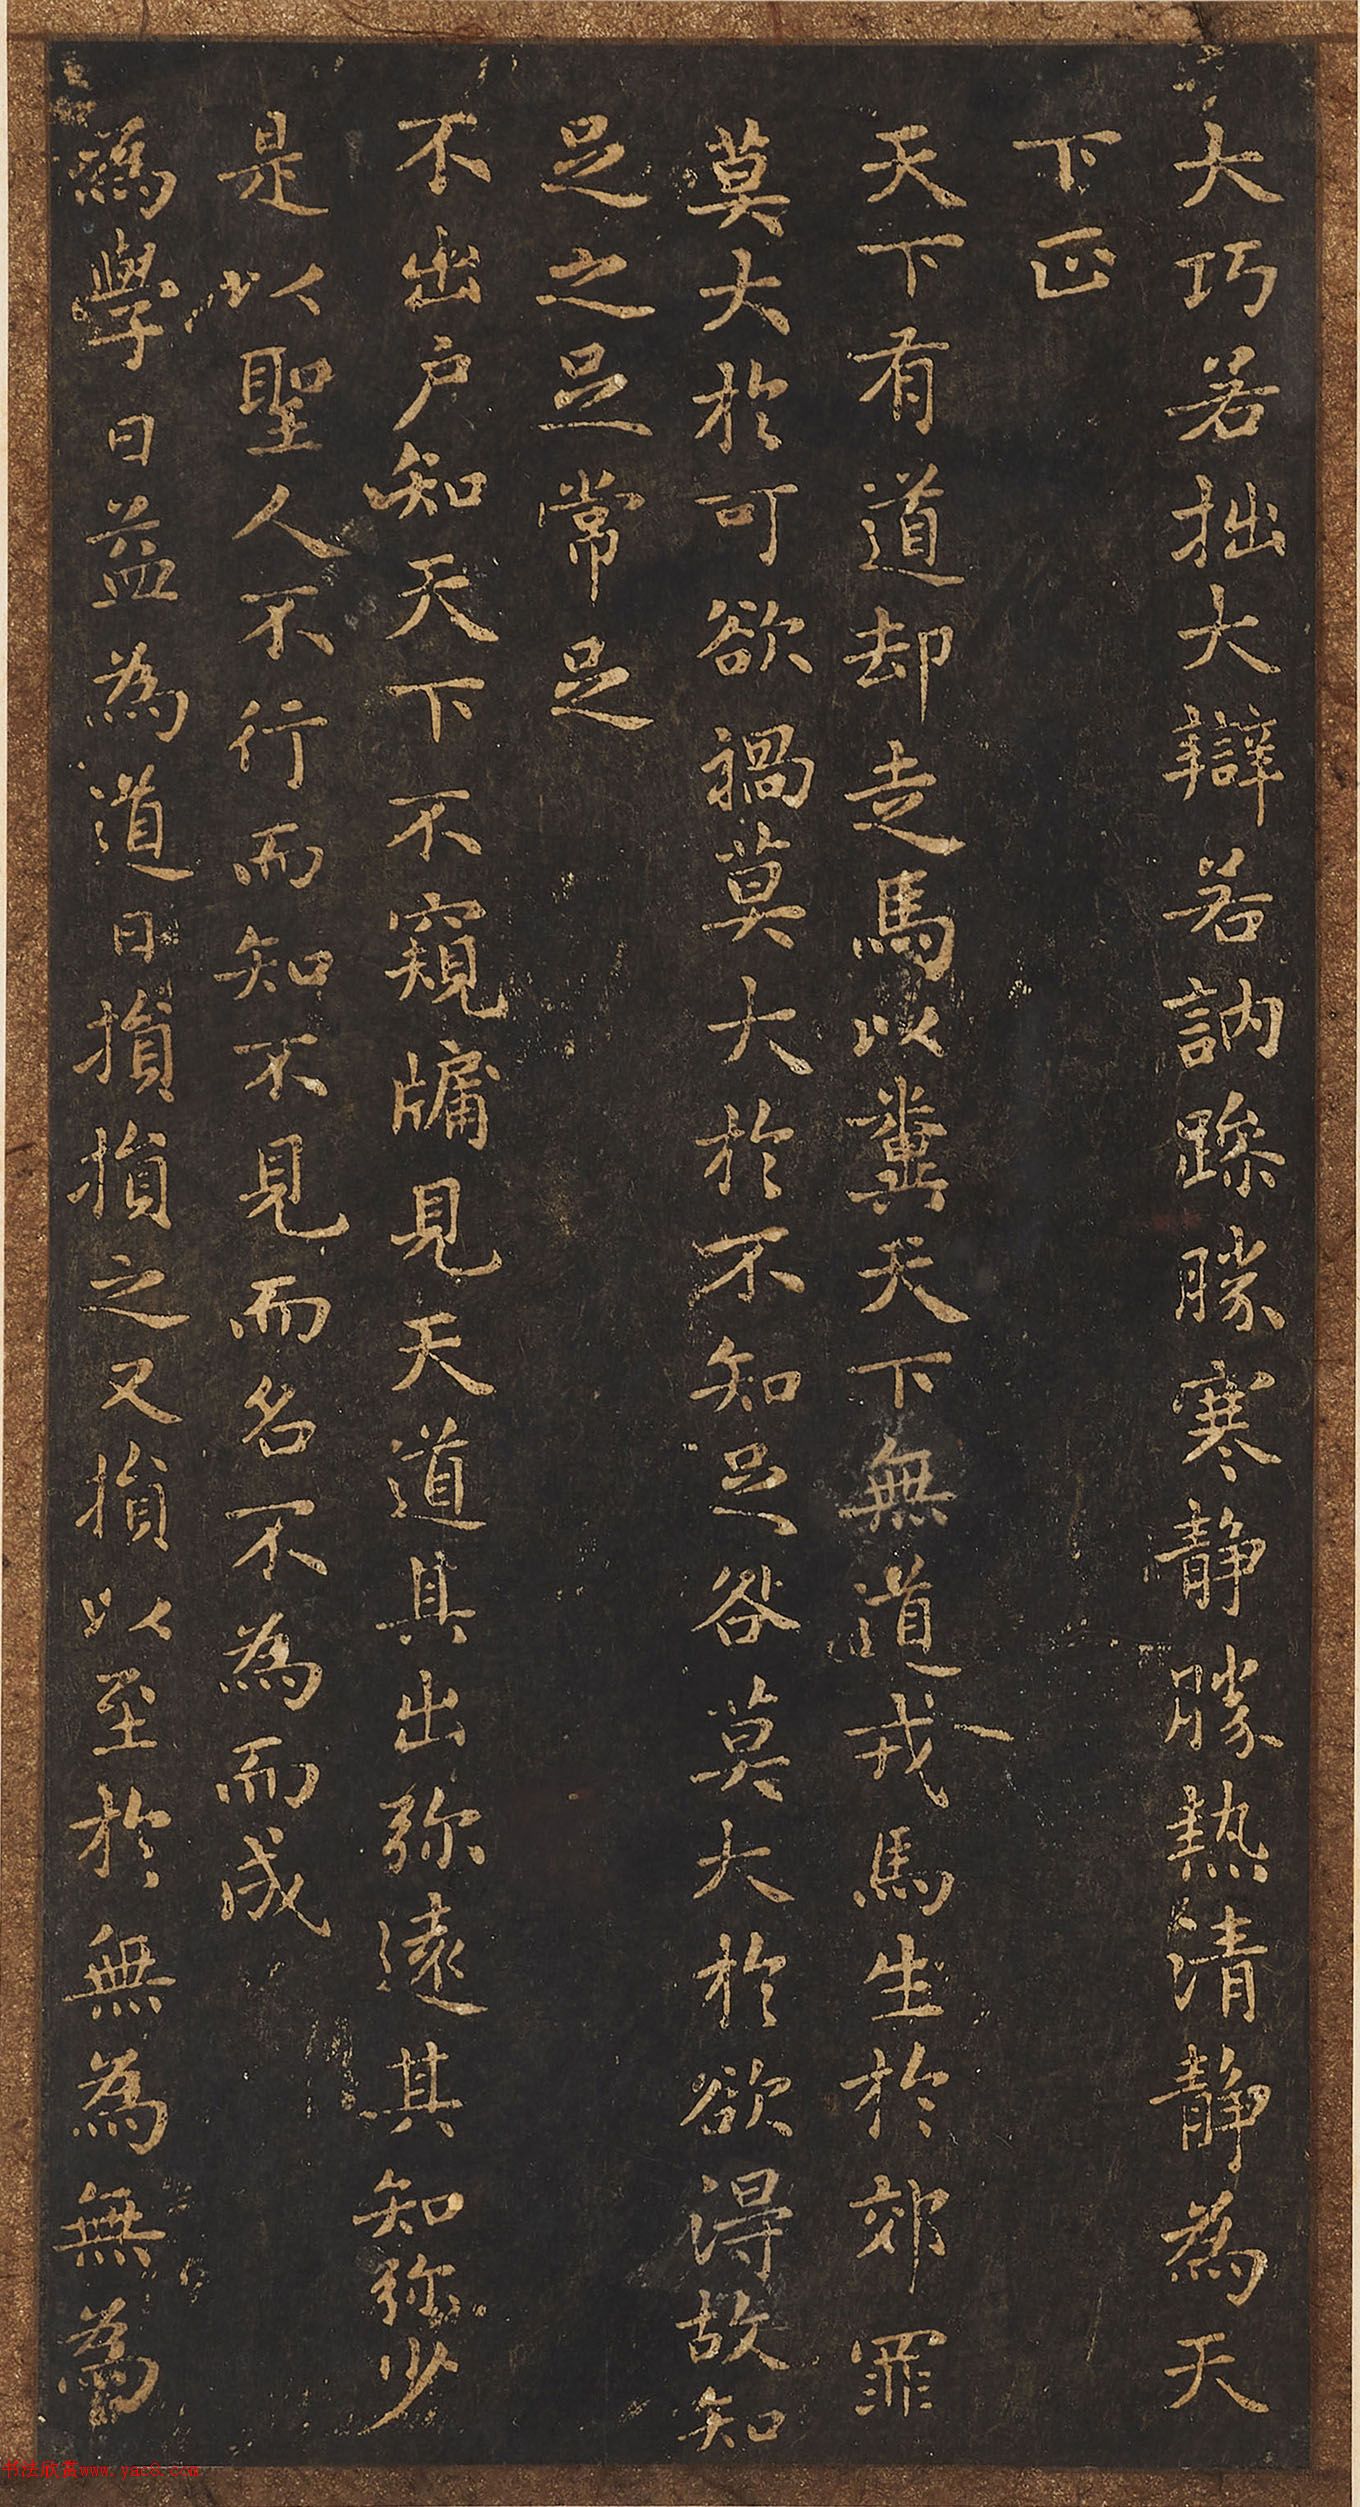 大巧若拙大辯若訥躁勝寒静勝熱清静為天
下正
天下有道却走馬以糞天下無道戎馬生於郊罪
莫大於可欲禍莫大於不知足咎莫大於欲得故知
足之足常足
不出户知天下不窺牖見天道其出弥遠其知弥少
是以聖人不行而知不見而名不為而成
為學日益為道日損損之又損以至於無為無為
书法欣赏www.yac8.com